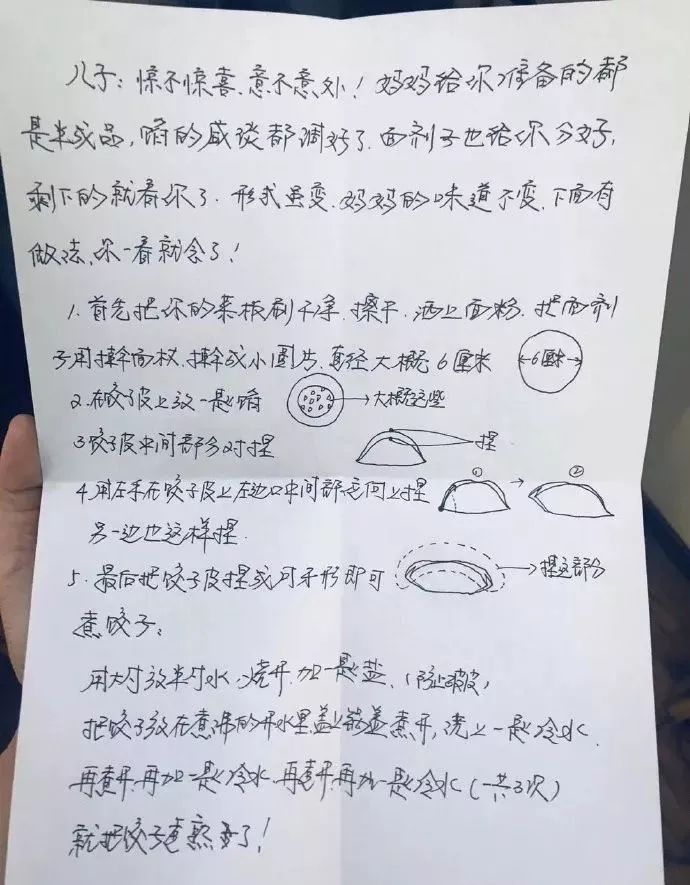 儿子：惊不惊喜、意不意外！妈妈给你准备的都
是半成品，馅的咸淡都调好了．面剂子也给你分好，
剩下的就看你了．形式虽变．妈妈的味道不变．下面有
做法、你一看就会了！
1．首先把你的菜板刷干净．擦干．洒上面粉．把面剂
子用擀面杖．擀成小圆片、直径大概6厘米
←6厘米→
2．在饺子皮上放一点馅
→大概这些
3 饺子皮中间部分对捏
捏
4．用左手在饺子皮上左边口中间部位向上捏
① → ②
另一边也这样捏．
5．最后把饺子皮捏成月牙形即可
→捏这部分
煮饺子：
用大锅放半锅水、烧开．加一点盐、（防止破皮）
把饺子放在煮沸的开水里盖上锅盖煮开，浇上一点冷水．
再煮开．再加一点冷水．再煮开再加一点冷水（一共3次）
就把饺子煮熟了！